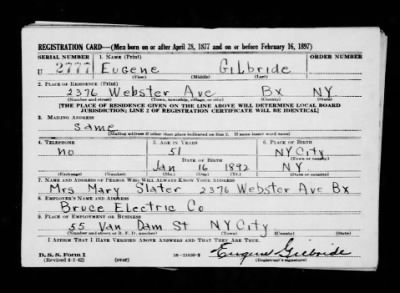 REGISTRATION CARD—(Men born on or after April 28, 1877 and on or before February 16, 1897)
SERIAL NUMBER 1. NAME (Print) ORDER NUMBER
U 2777 Eugene Gilbride
(First) (Middle) (Last)
2. PLACE OF RESIDENCE (Print)
2376 Webster Ave Bx NY.
(Number and street) (Town, township, village, or city) (County) (State)
[THE PLACE OF RESIDENCE GIVEN ON THE LINE ABOVE WILL DETERMINE LOCAL BOARD
JURISDICTION; LINE 2 OF REGISTRATION CERTIFICATE WILL BE IDENTICAL]
3. MAILING ADDRESS
Same
[Mailing address if other than place indicated on line 2. If same insert word same]
4. TELEPHONE 5. AGE IN YEARS 6. PLACE OF BIRTH
no 51 NY City
DATE OF BIRTH (Town or county)
Jan 16 1892 NY
(Exchange) (Number) (Mo.) (Day) (Yr.) (State or country)
7. NAME AND ADDRESS OF PERSON WHO WILL ALWAYS KNOW YOUR ADDRESS
Mrs Mary Slater 2376 Webster Ave Bx
8. EMPLOYER'S NAME AND ADDRESS
Bruce Electric Co
9. PLACE OF EMPLOYMENT OR BUSINESS
55 Van Dam St NY City
(Number and street or R. F. D. number) (Town) (County) (State)
I AFFIRM THAT I HAVE VERIFIED ABOVE ANSWERS AND THAT THEY ARE TRUE.
D. S. S. Form 1 Eugene Gilbride
(Revised 4-1-42) (Registrant's signature)